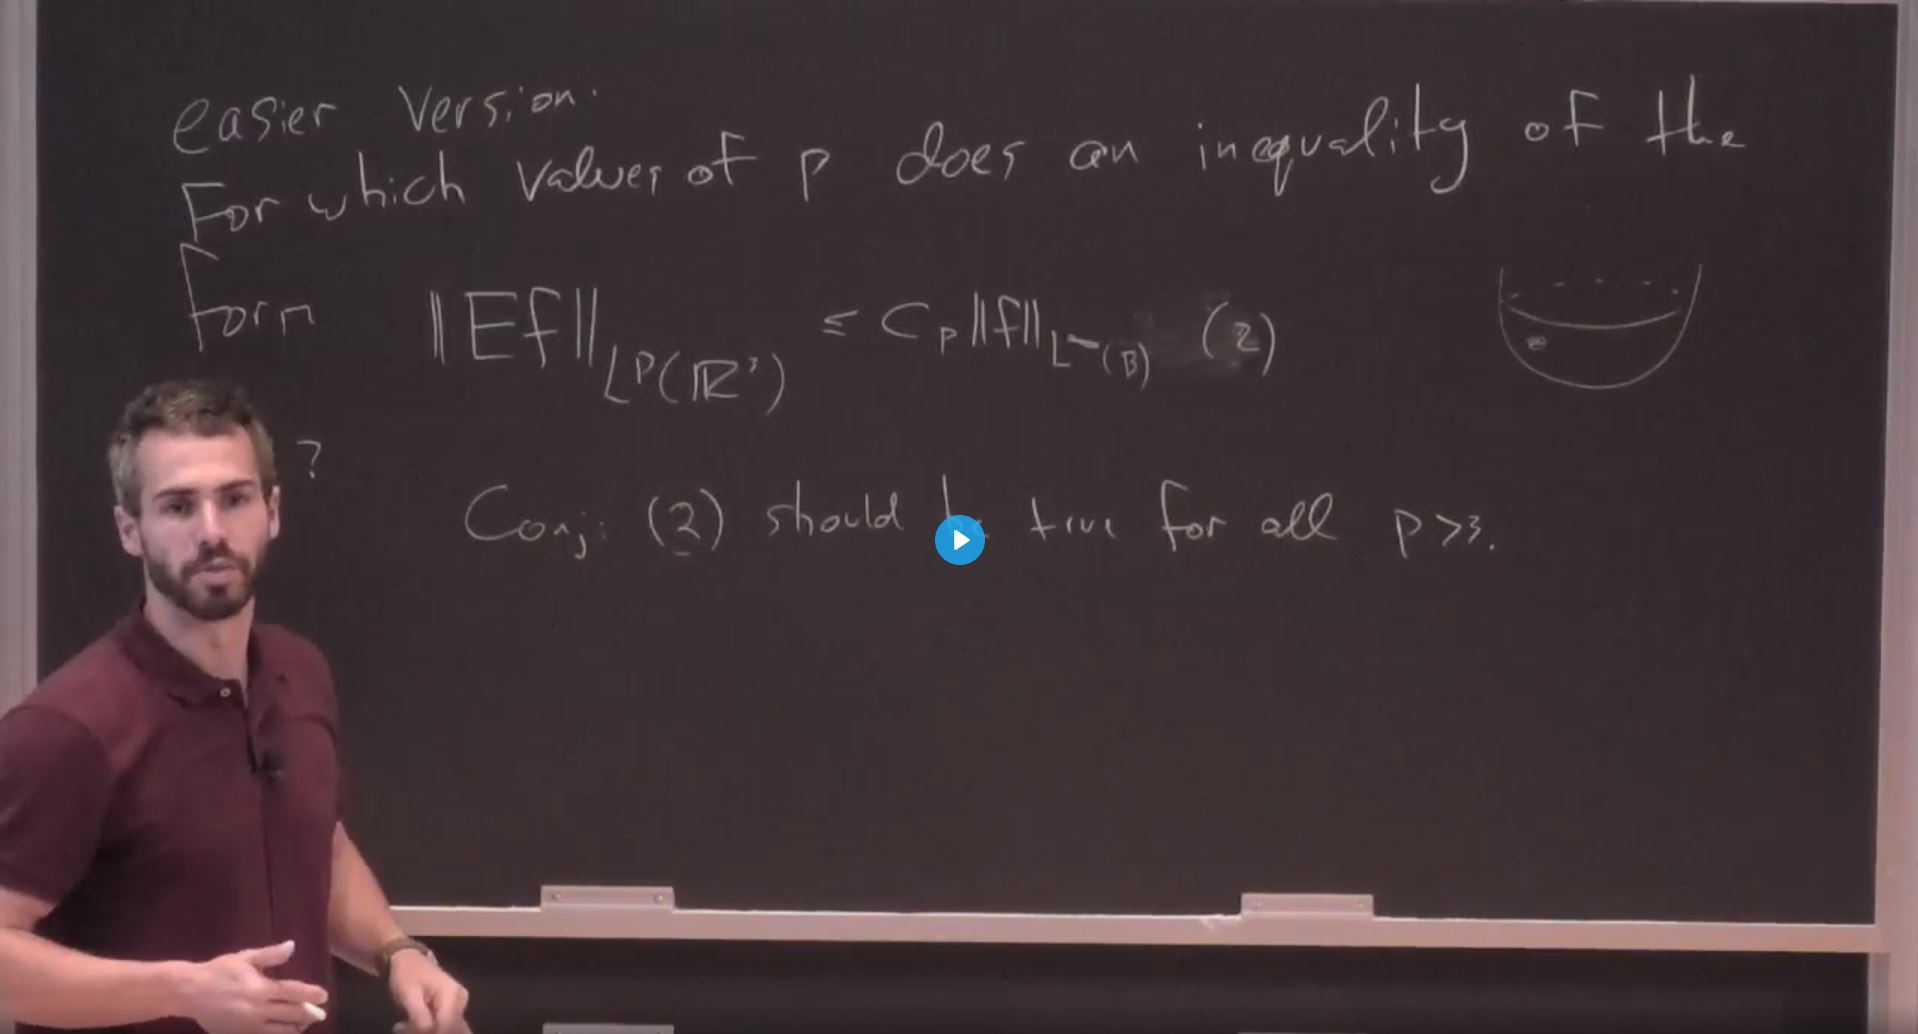 easier version:
For which values of p does an inequality of the
form ‖Ef‖_{L^p(ℝ³)} ≤ C_p ‖f‖_{L^∞(B)} (2)
?
Conj: (2) should be true for all p > 3.